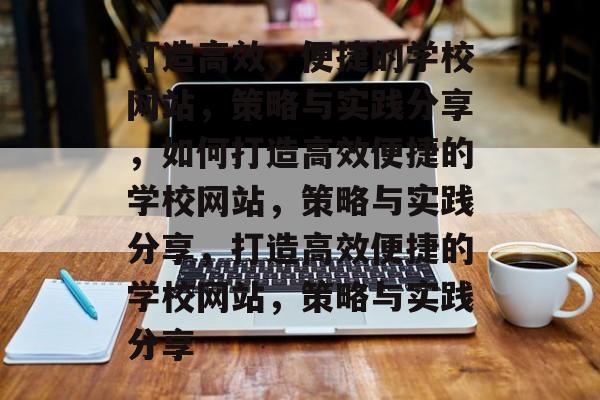 打造高效、便捷的学校
网站，策略与实践分享
，如何打造高效便捷的
学校网站，策略与实践
分享，打造高效便捷的
学校网站，策略与实践
分享